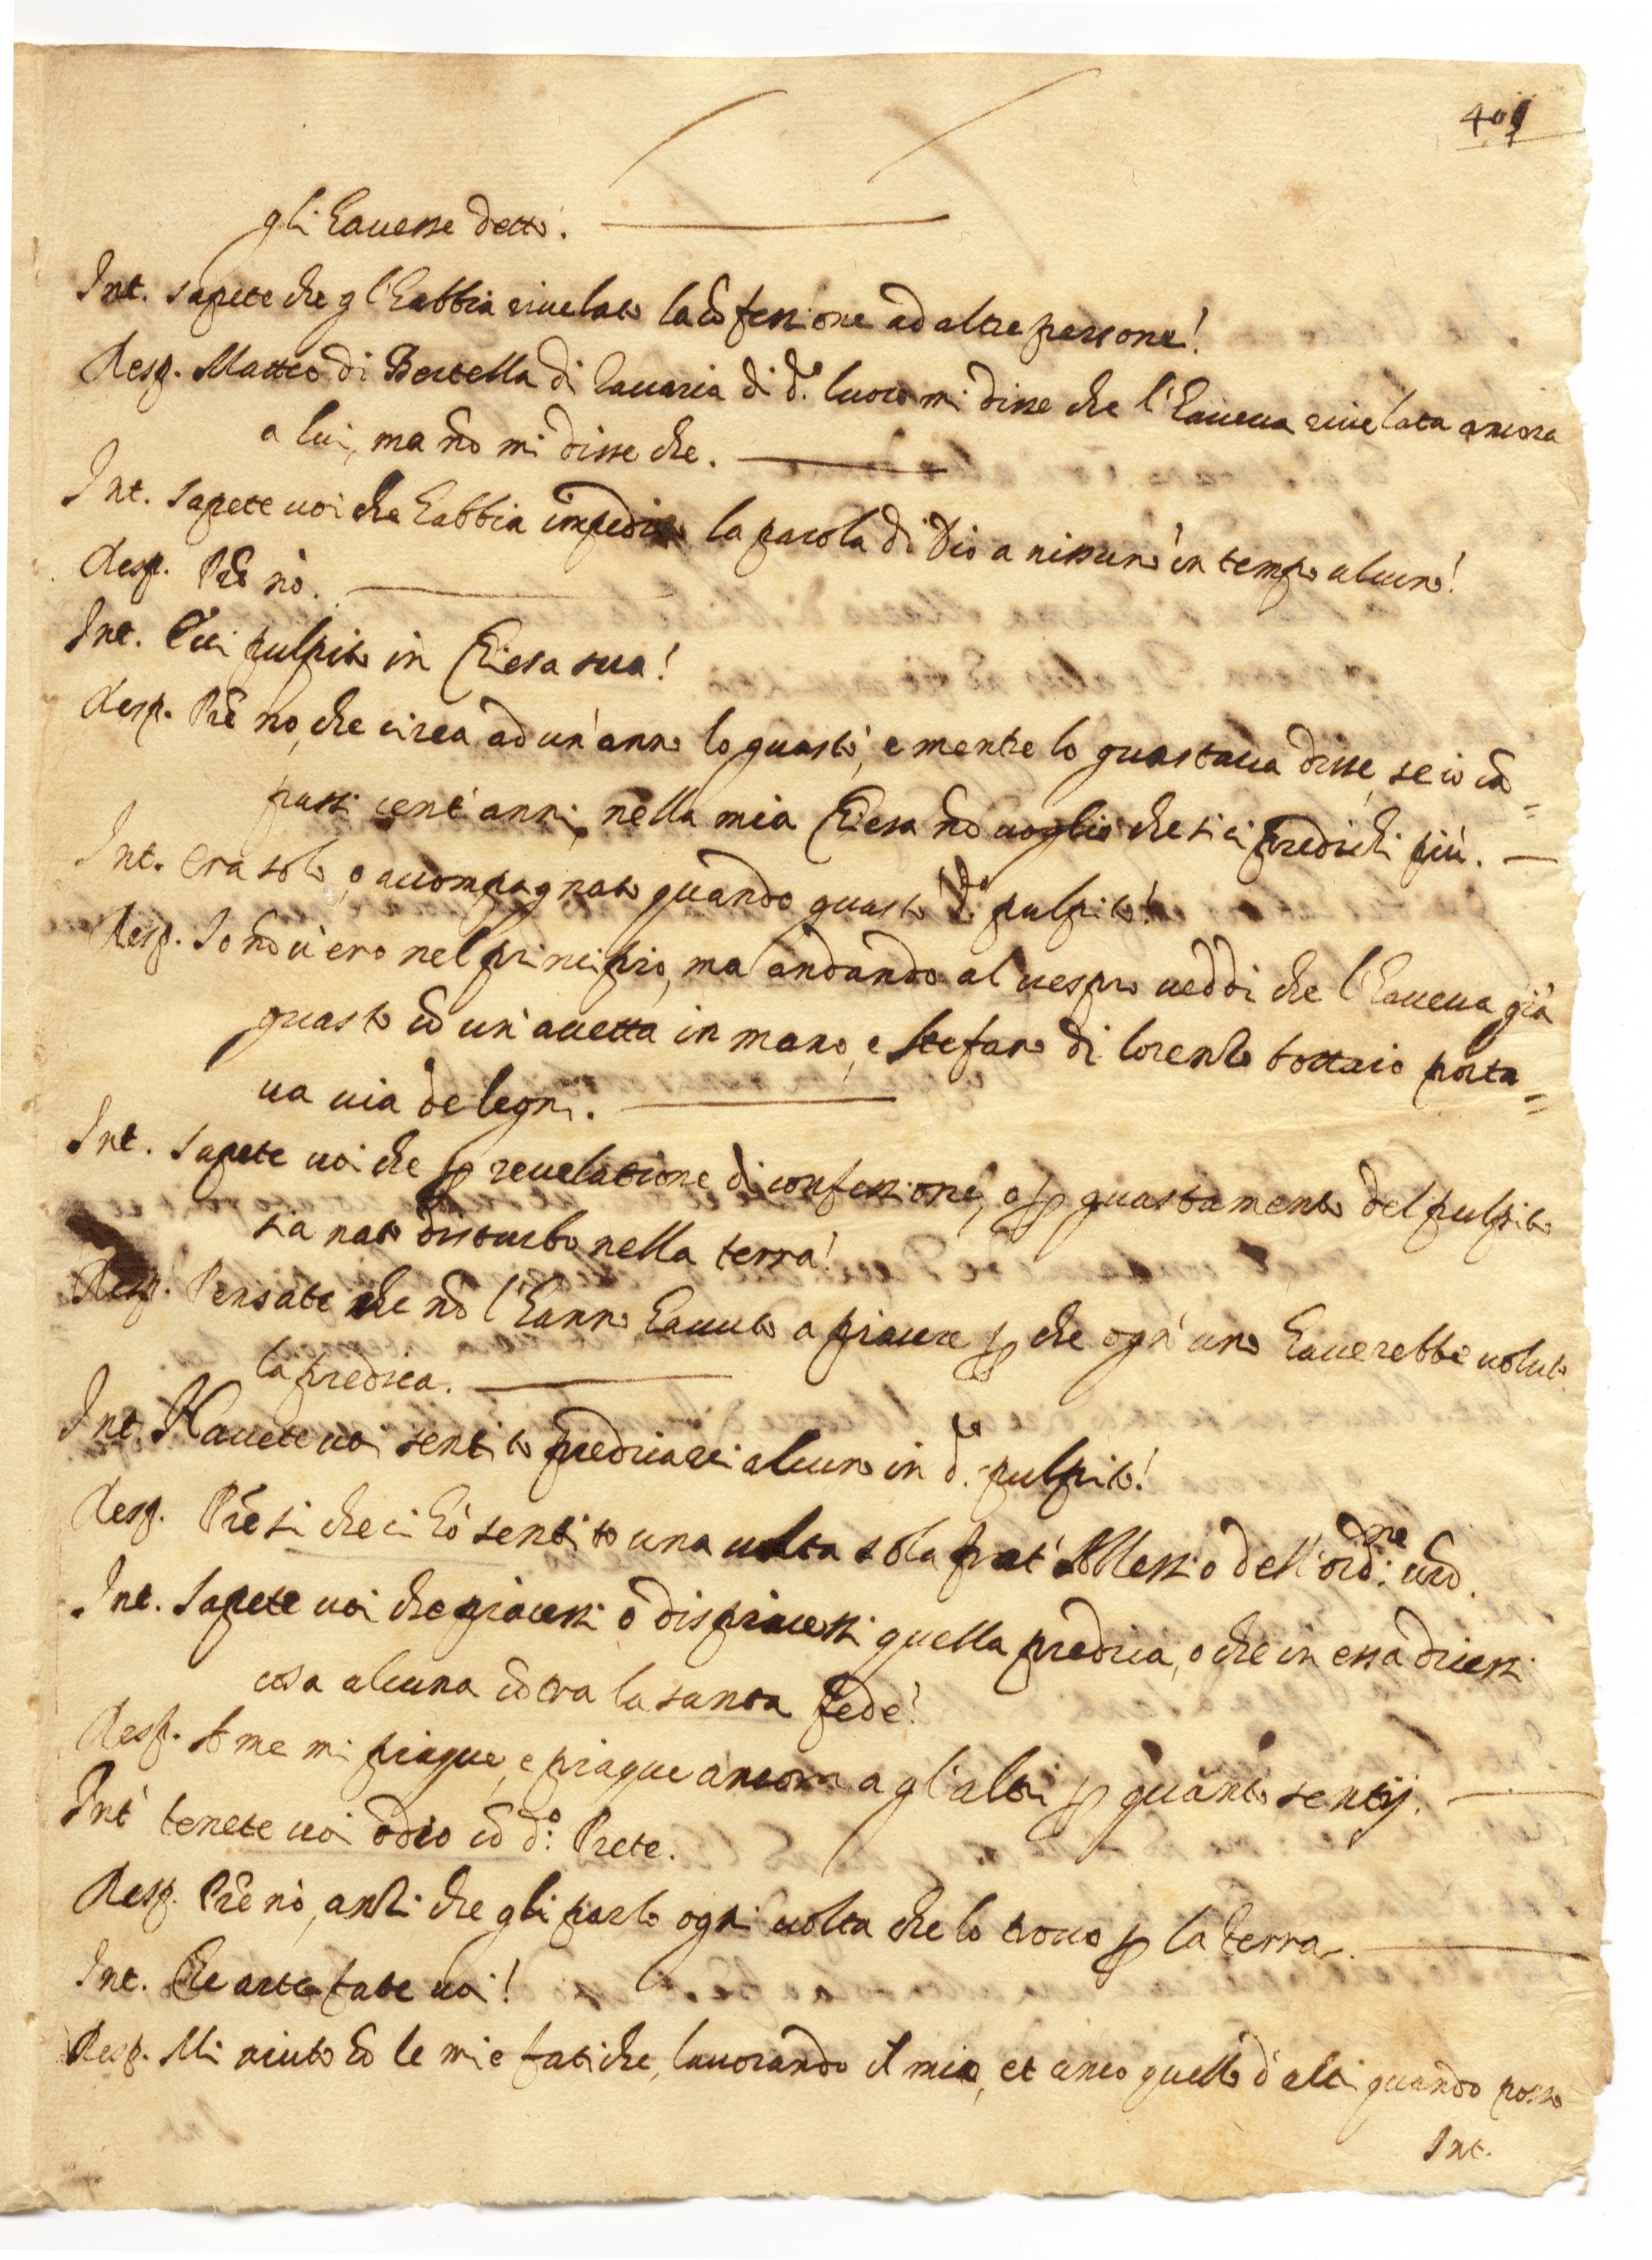 401
gli hauesse detto.
Int. sapete che gl'habbia riuelato la cõfessione ad altre persone!
Resp. Matteo di Bertella di Cauaria di d.º luoco mi disse che l'haueua riuelata ancora
a lui, ma nõ mi disse che.
Int. Sapete uoi che habbia impedito la parola di Dio a nissuno in tempo alcuno!
Resp. Prẽ nò.
Int. C'è pulpito in Chiesa sua!
Resp. Prẽ no, che circa ad un'anno lo guastò, e mentre lo guastaua disse, se io cã=
passi cent'anni, nella mia Chiesa nõ uoglio che si ci predichi più.
Int. Era solo, o accompagnato quando guastò d.º pulpito!
Resp. Io nõ u'ero nel principio, ma andando al uespro ueddi che l'haueua già
guasto cõ un'accetta in mano, e Stefano di Lorenzo bottaio porta=
ua uia de legni.
Int. Sapete uoi che p reuelatione di confessione, o p guastamento del pulpito
sia nato disturbo nella terra!
Resp. Pensate che nõ l'hanno hauuto a piacere p che ogn'uno hauerebbe uoluto
la predica.
Int. Hauete uoi sentito predicarci alcuno in d.º pulpito!
Resp. Prẽ si che ci hò sentito una uolta sola frat'Alessio dell'ord.ne
Int. Sapete uoi che piacessi ò dispiacessi quella predica, o che in essa dicessi
cosa alcuna cõtra la santa fede!
Resp. A me mi piaque, e piaque ancora a gl'altri p quanto sentij.
Int. tenete uoi odio cõ d.º Prete.
Resp. Prẽ nò, anzi che gli parlo ogni uolta che lo trouo p la terra.
Int. Che arte fate uoi!
Resp. Mi aiuto cõ le mie fatiche, lauorando il mio, et anco quello d'altri quando posso
Int.